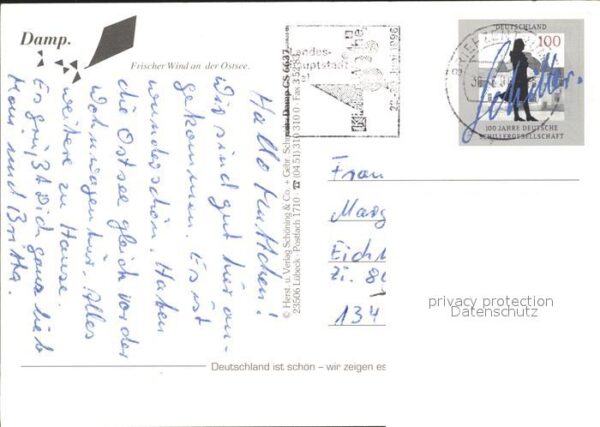 Damp.
Frischer Wind an der Ostsee.
Hallo Muttchen!
Wir sind gut hier an-
gekommen. Es ist
wunderschön. Haben
die Ostsee gleich vor der
Wohnwagentür. Alles
weitere zu Hause.
Es grüßt Dich ganz lieb
Hans und Britta.
© Herst. u. Verlag Schöning & Co. + Gebr. Schmidt
23506 Lübeck · Postfach 1710 · ☎ (04 51) 310 310 0
Damp CS 6637
DEUTSCHLAND
100
Schiller
100 JAHRE DEUTSCHE
SCHILLERGESELLSCHAFT
Frau
Marg
Eich
134
privacy protection
Datenschutz
Deutschland ist schön – wir zeigen es